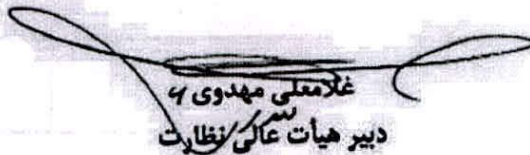 غلامعلی مهدوی
دبیر هیأت عالی نظارت